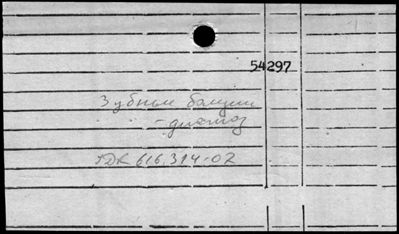 54297
Зубные бляшки
- диагноз
УДК 616.314-02